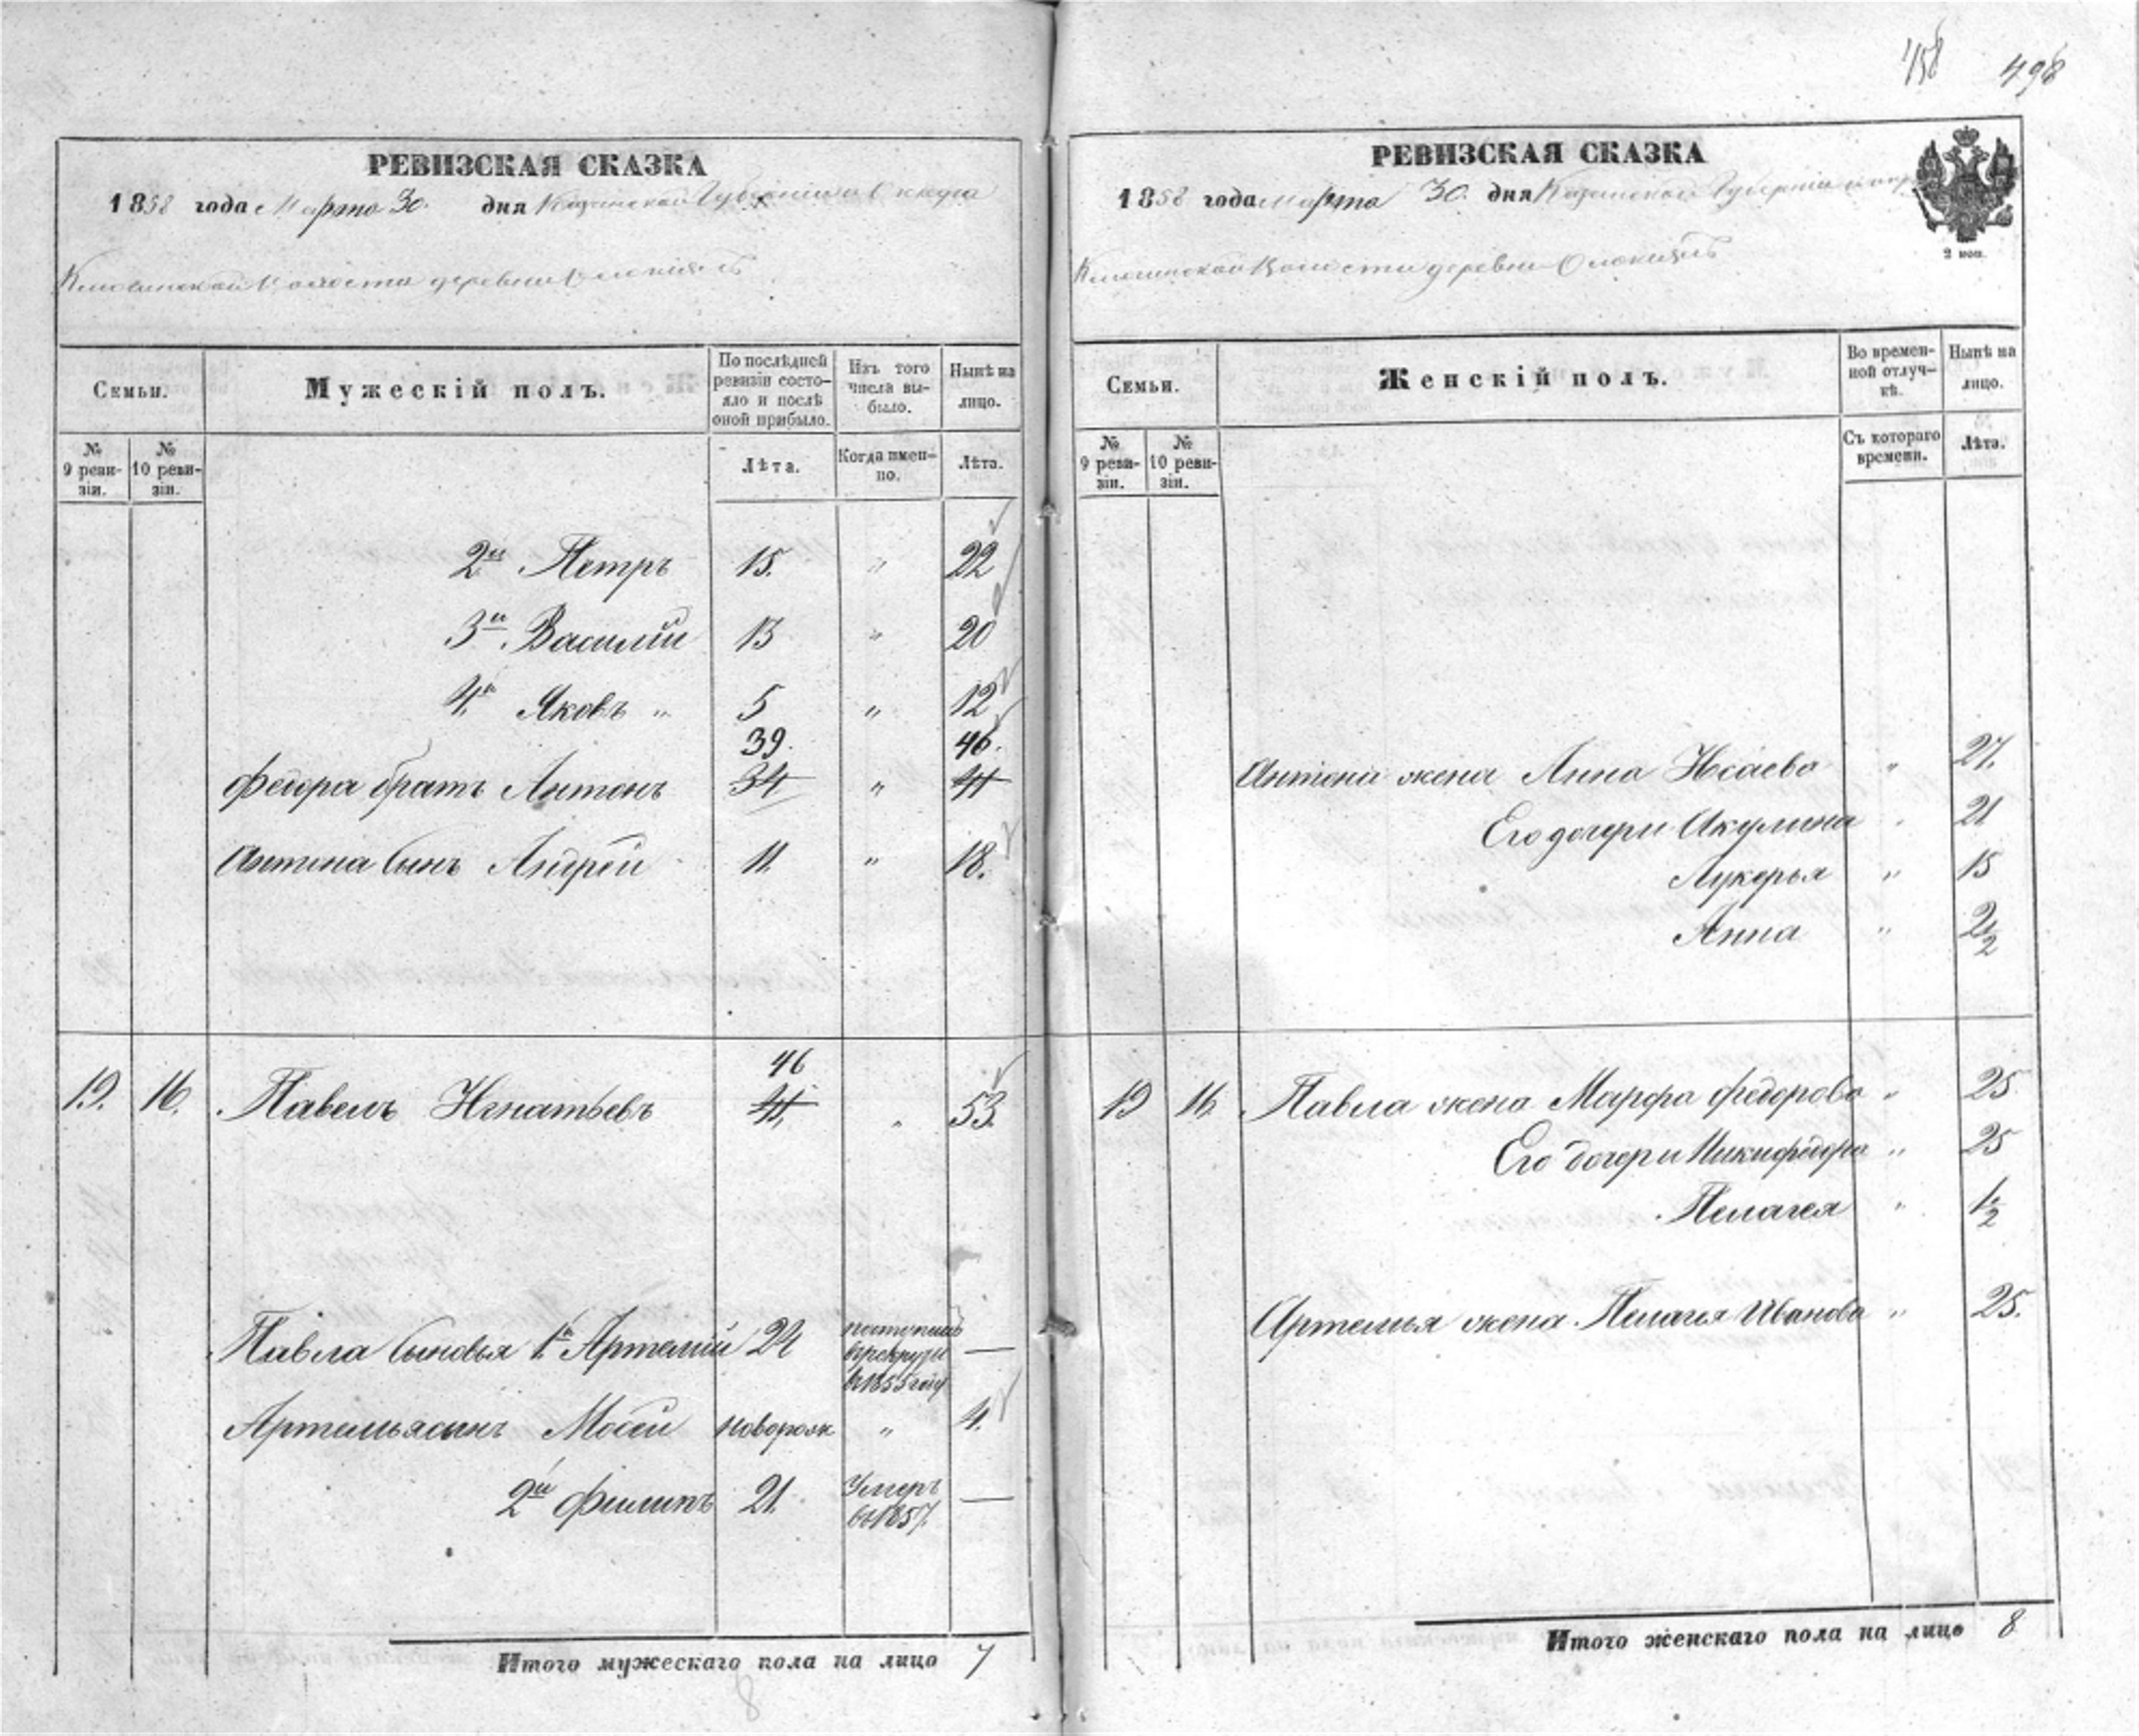 458 498
РЕВИЗСКАЯ СКАЗКА
1858 года Марта 30. дня Казанской Губернии
волости деревни
Семьи.
Мужескій полъ.
По послѣдней ревизіи состо-
яло и послѣ оной прибыло.
Изъ того числа вы-
было.
Нынѣ на лицо.
№ 9 реви-
зіи.
№ 10 реви-
зіи.
Лѣта.
Когда имен-
но.
Лѣта.
2й Петръ 15. " 22
3й Василій 13 " 20
4й Яковъ " 5 " 12
39. 46.
Федора братъ Антонъ 34 " 41
Антона сынъ Андрей 11. " 18.
46
19. 16. Павелъ Игнатьевъ 41, " 53.
Павла сыновья 1й Артемій 24 поступилъ
в рекруты —
в 1855 году
Артемья сынъ Мосей новорож " 4.
2й Филипъ 21. Умеръ —
въ 1857.
Итого мужескаго пола на лицо 7
8
РЕВИЗСКАЯ СКАЗКА
1858 года Марта 30. дня Казанской Губернии
2 коп.
Волости деревни
Семьи.
Женскій полъ.
Во времен-
ной отлуч-
кѣ.
Нынѣ на лицо.
№ 9 реви-
зіи.
№ 10 реви-
зіи.
Съ котораго времени.
Лѣта.
Антона жена Анна Исаева " 27.
Его дочери Акулина " 21
Лукерья " 15
Анна " 2½
19 16. Павла жена Марфа Федорова " 25
Его дочери Никифора " 25
Пелагея " ½
Артемья жена Пелагея Иванова " 25.
Итого женскаго пола на лицо 8